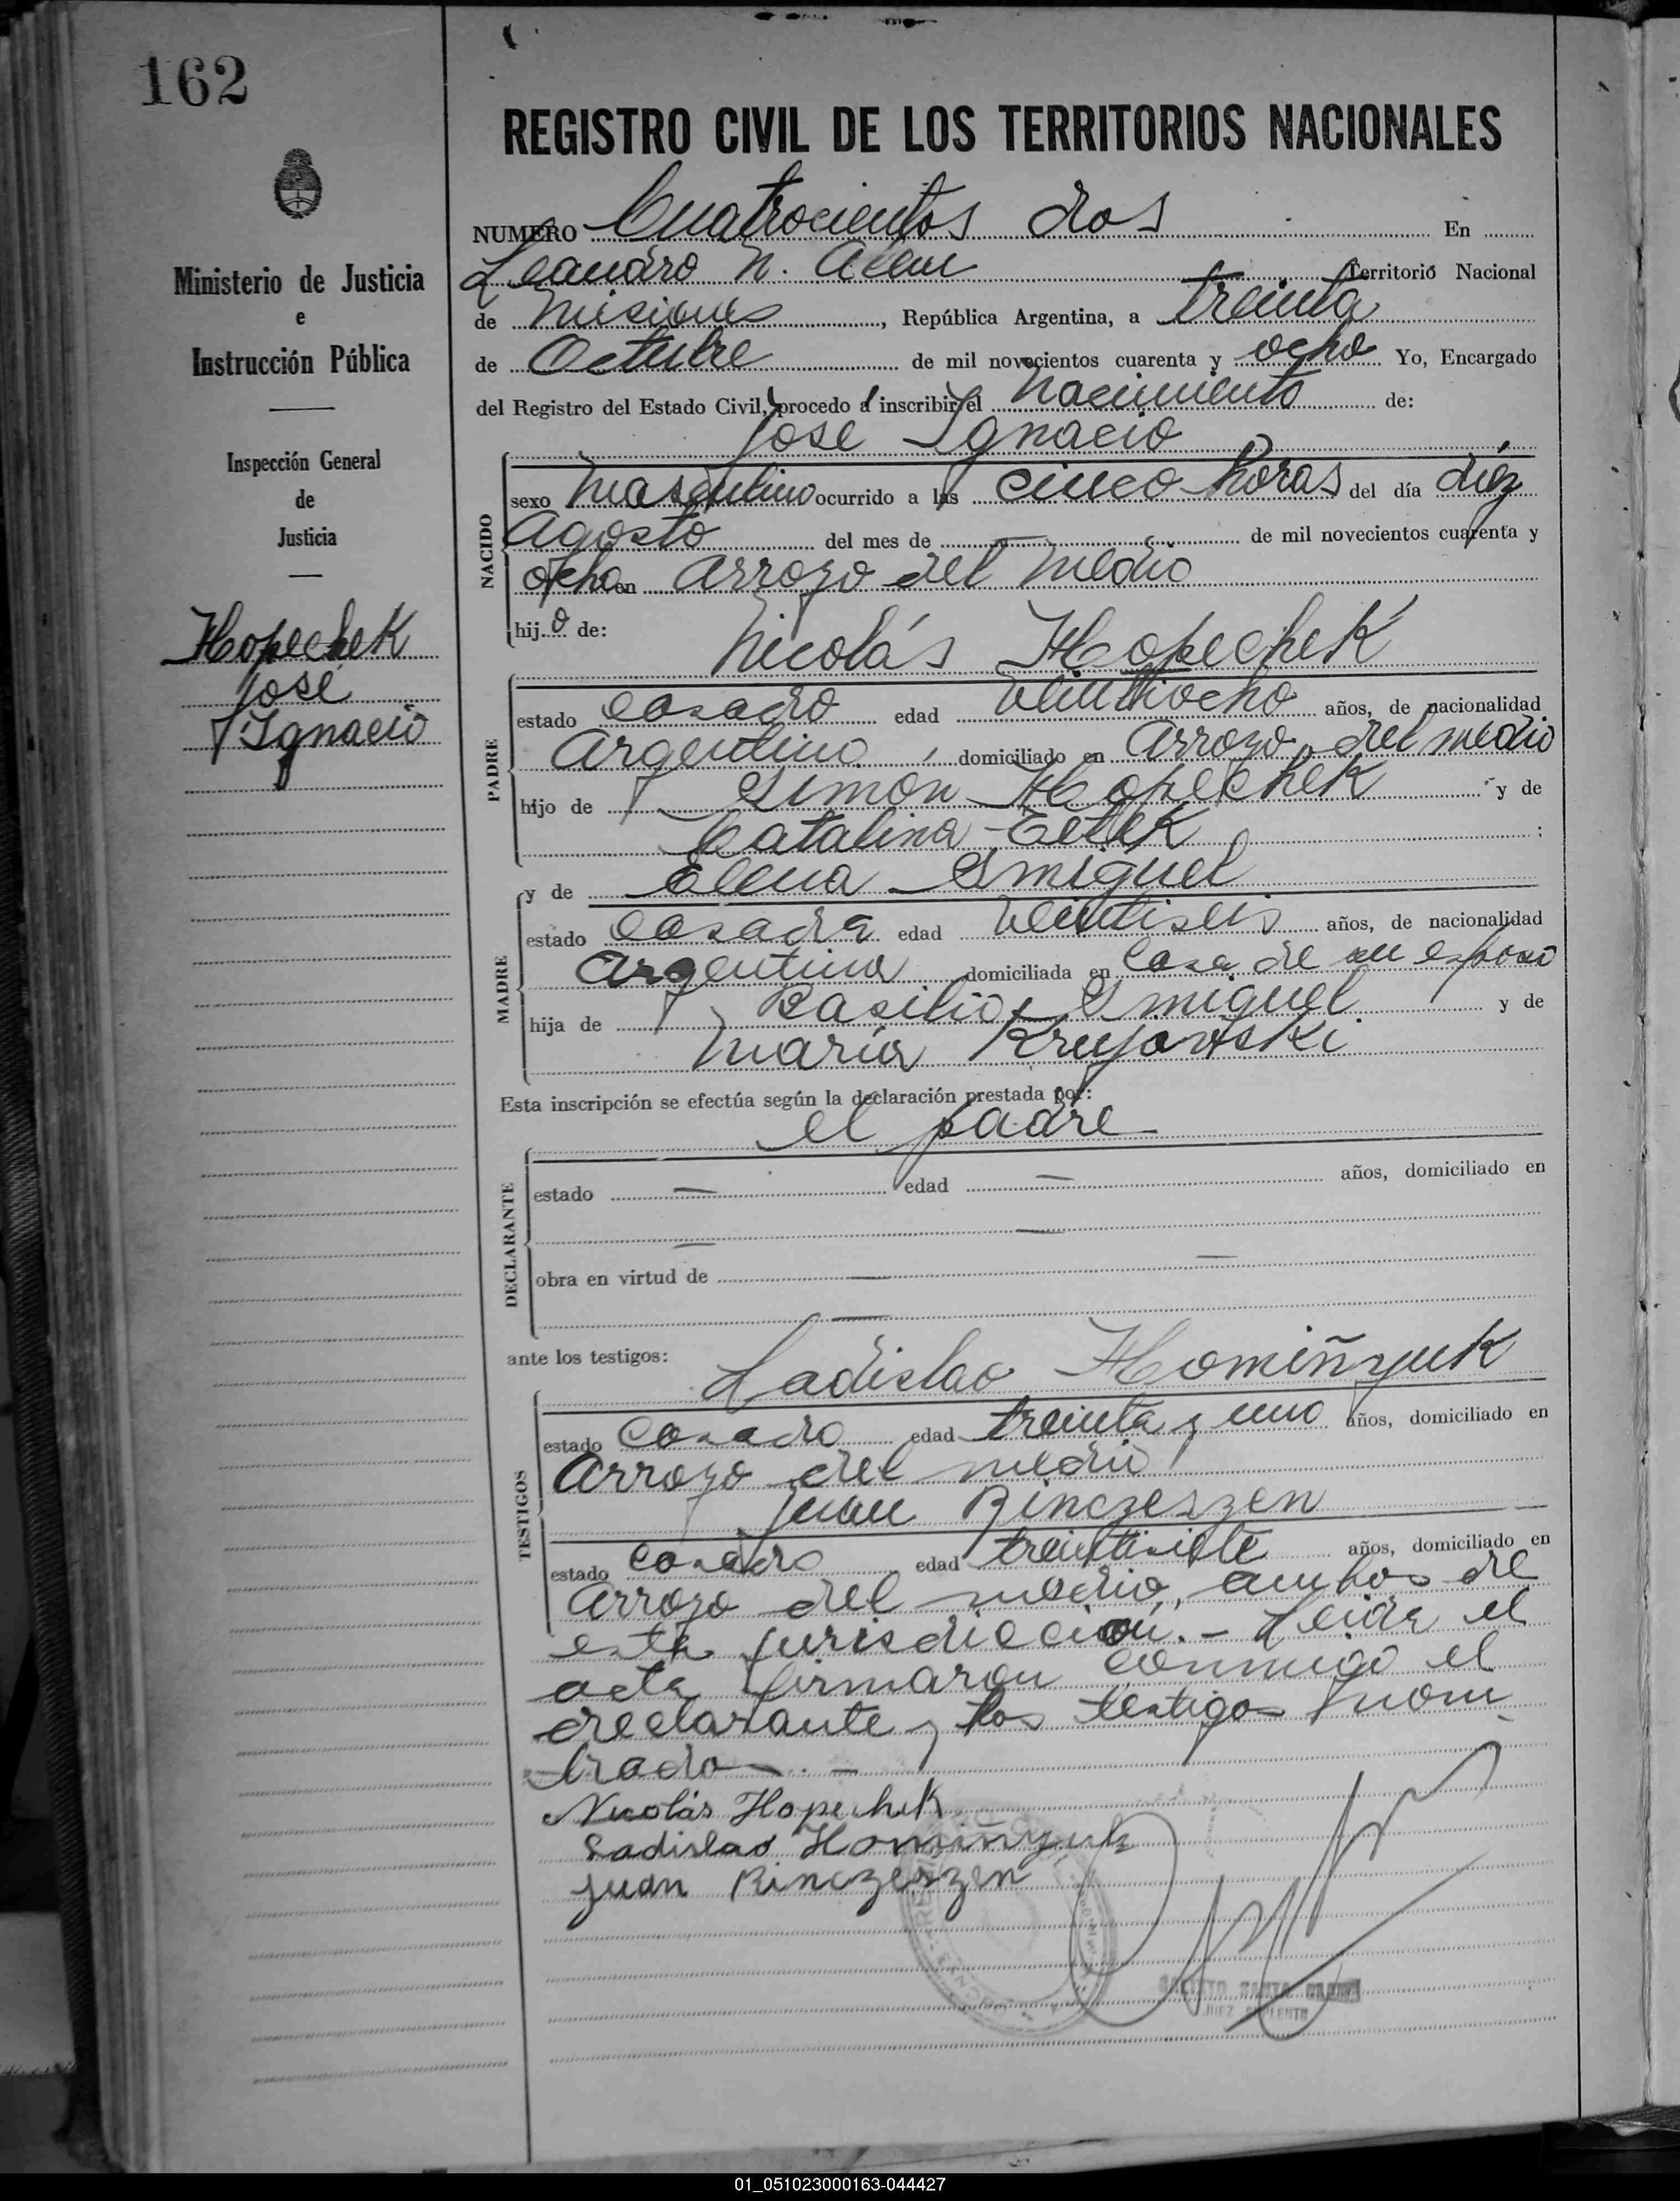 162
REGISTRO CIVIL DE LOS TERRITORIOS NACIONALES
Ministerio de Justicia
e
Instrucción Pública
Inspección General
de
Justicia
Hopechek
José
Ignacio
NUMERO Cuatrocientos dos En
Leandro N. Alem Territorio Nacional
de Misiones, República Argentina, a treinta
de Octubre de mil novecientos cuarenta y ocho Yo, Encargado
del Registro del Estado Civil, procedo a inscribir el nacimiento de:
José Ignacio
NACIDO
sexo masculino ocurrido a las cinco horas del día diéz
Agosto del mes de de mil novecientos cuarenta y
ocho en Arroyo del Medio
hijo de:
Nicolás Hopechek
PADRE
estado casado edad veintiocho años, de nacionalidad
Argentino domiciliado en Arroyo del medio
hijo de Simón Hopechek y de
Catalina ;
y de Elena Smiguel
MADRE
estado casada edad veintiseis años, de nacionalidad
Argentina domiciliada en Casa de su esposo
hija de Basilio Smiguel y de
María
Esta inscripción se efectúa según la declaración prestada por:
el padre
DECLARANTE
estado — edad — años, domiciliado en
— —
obra en virtud de — —
—
ante los testigos:
Ladislao Homiñyuk
TESTIGOS
estado casado edad treinta y uno años, domiciliado en
Arroyo del medio
Juan Rinczeszen
estado casado edad treintisiete años, domiciliado en
Arroyo del medio, ambos de
esta jurisdicción.- Leida el
acta firmaron conmigo el
declarante y los testigos nom
brados.-
Nicolás Hopechek
Ladislao Homiñyuk
Juan Rinczeszen
JUEZ SUPLENTE
01_051023000163-044427